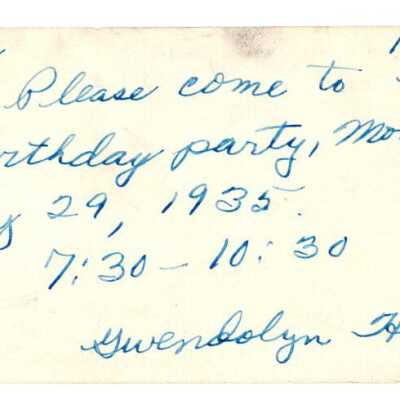 Please come to
rthday party, Mo
29, 1935.
7:30 – 10:30
Gwendolyn H